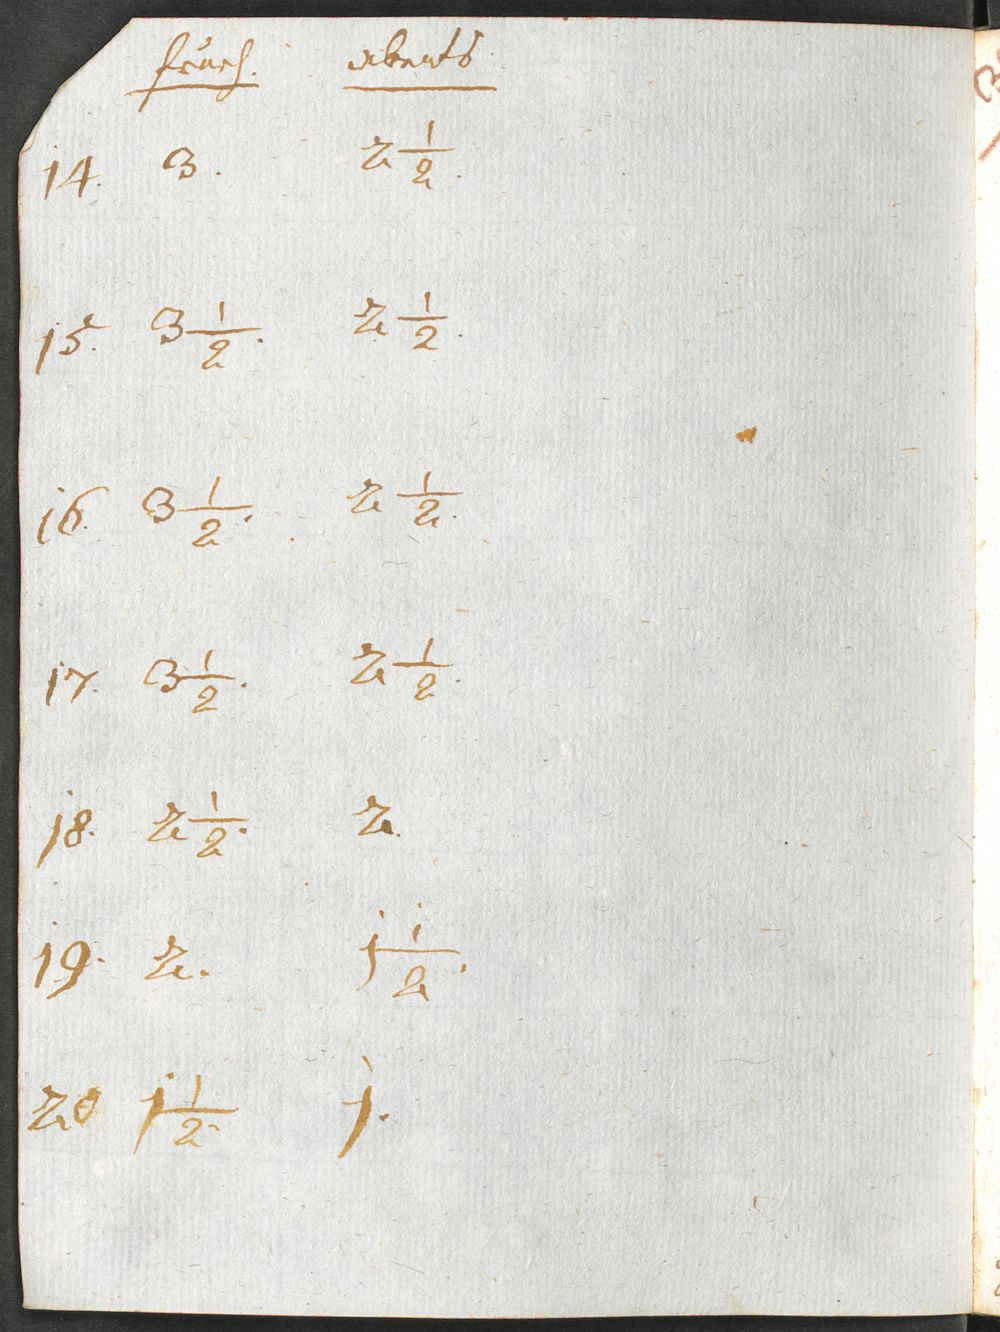 früeh. abents
14. 3. 2 1/2.
15. 3 1/2. 2 1/2.
16. 3 1/2. 2 1/2.
17. 3 1/2. 2 1/2.
18. 2 1/2. 2.
19. 2. j 1/2.
20 j 1/2. j.